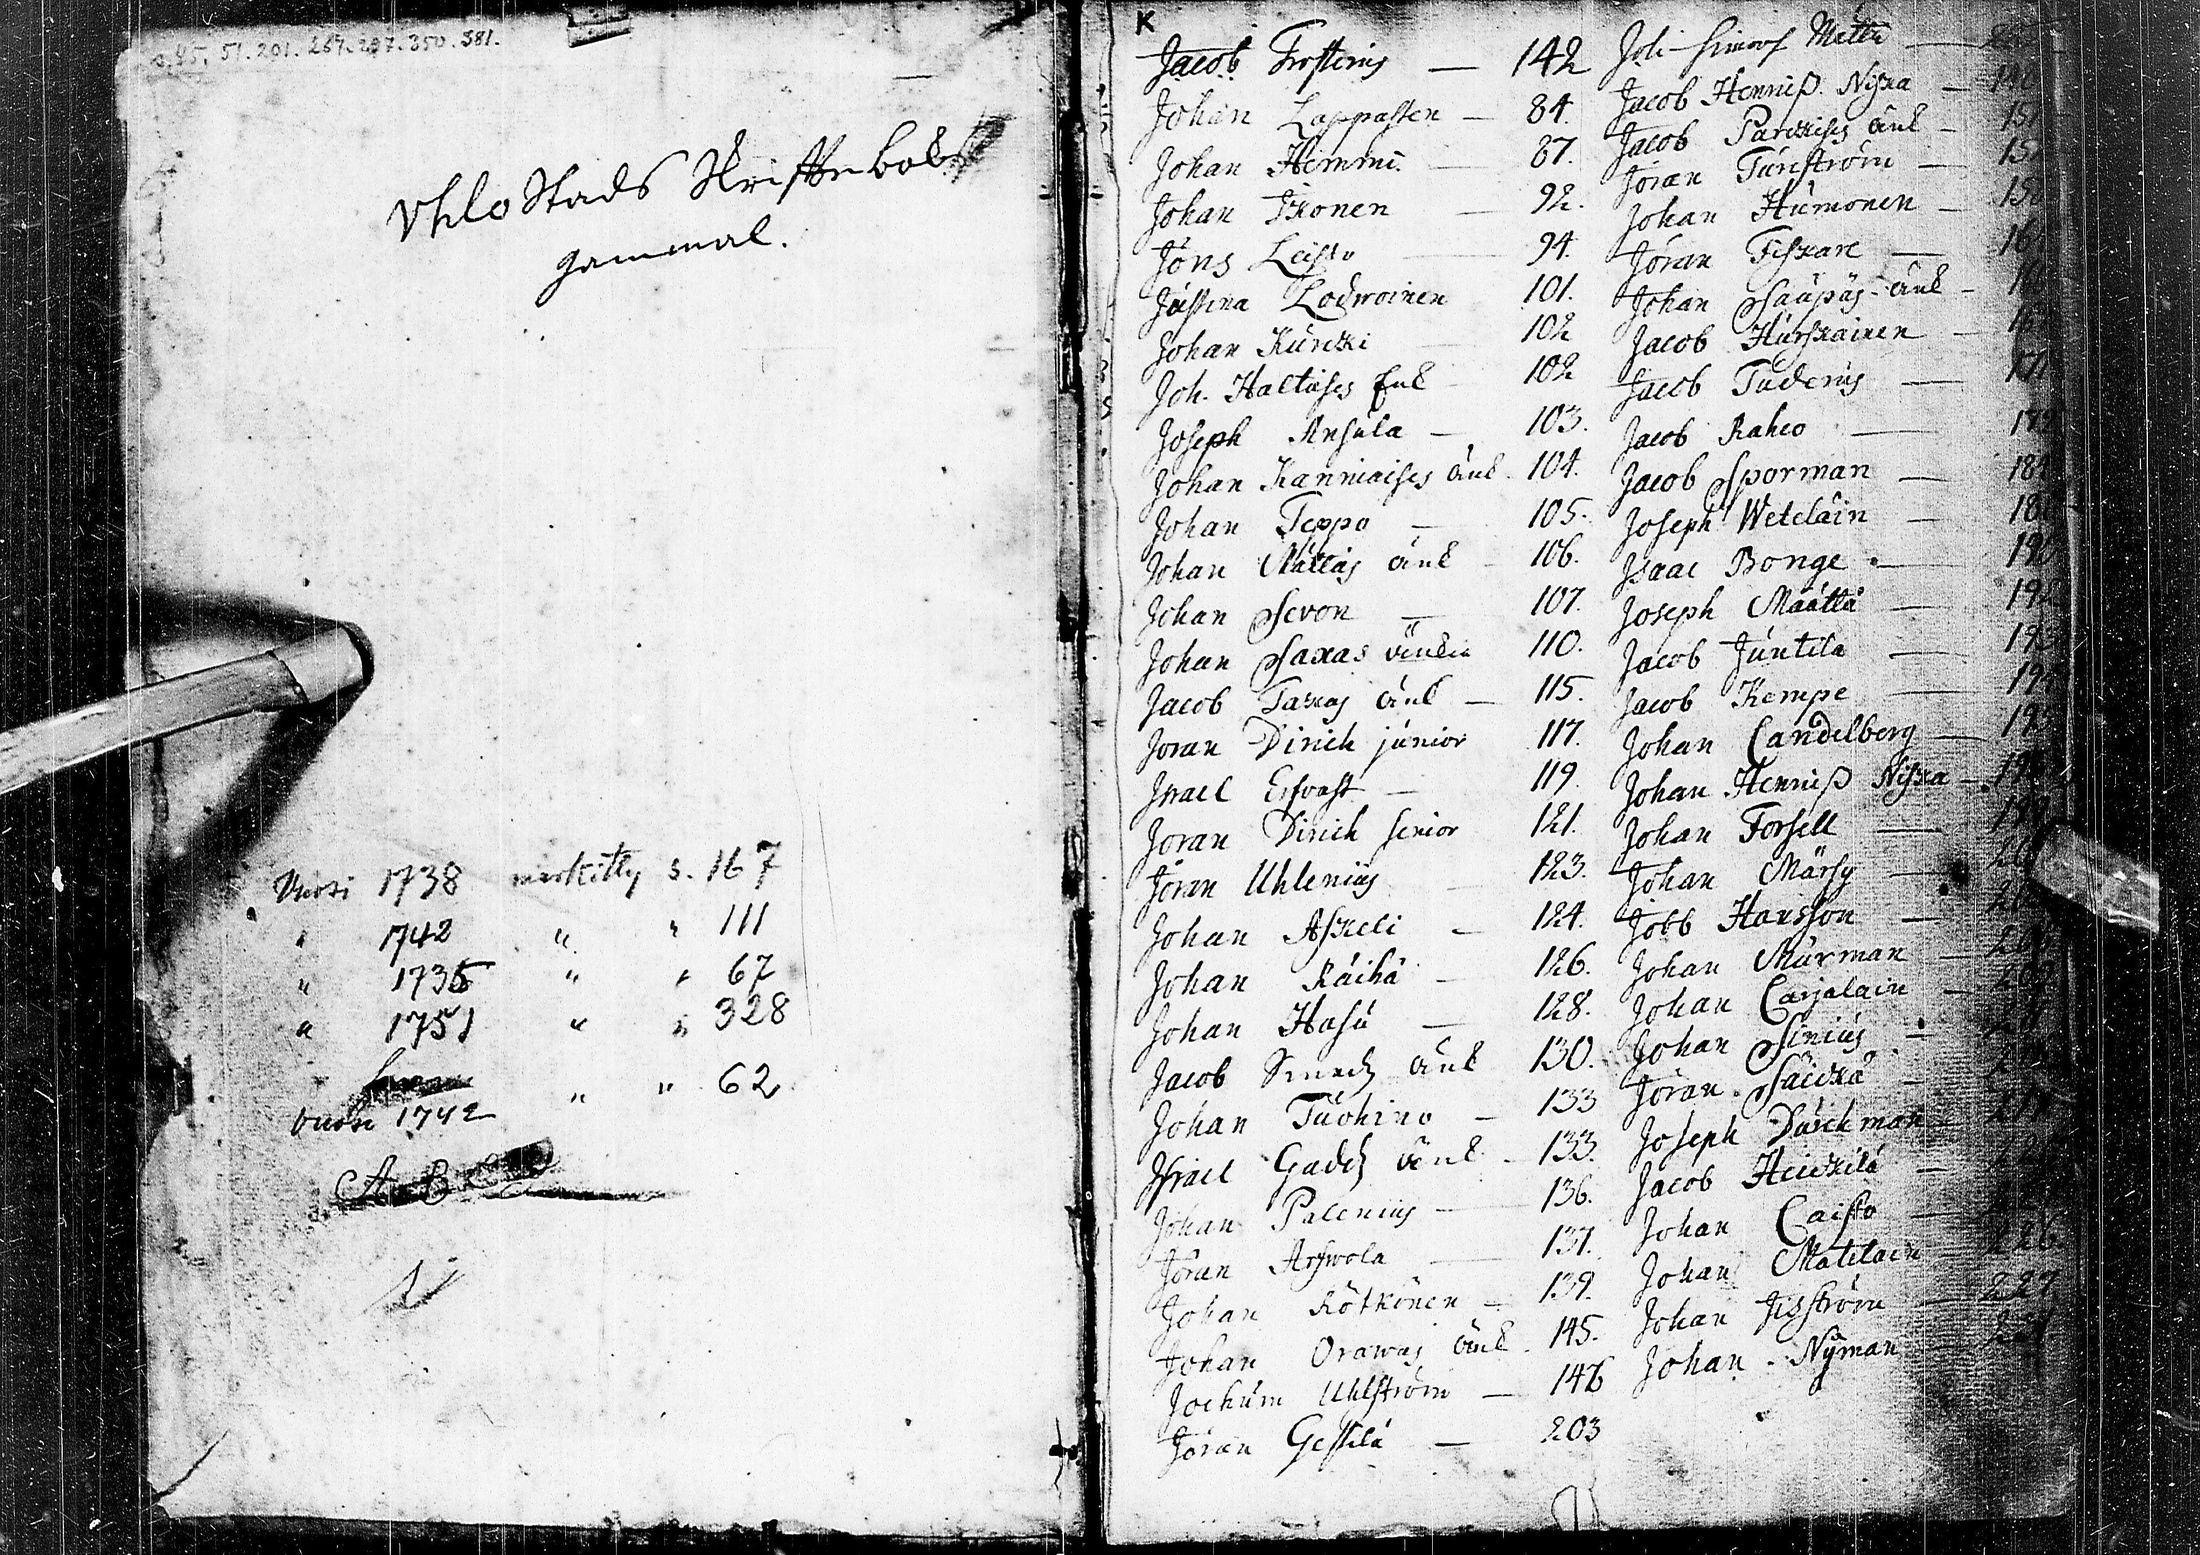 s. 45. 51. 201. 267. 297. 350. 381.
Uhlo Stads Skriftebok
gammal.
Vuosi 1738 merkitty s. 167
" 1742 " " 111
" 1735 " " 67
" 1751 " " 328
" " 62
Vuosi 1742
K
Jacob Frosterus — 142
Johan Lappalten — 84.
Johan Hemmi — 87.
Johan Ikonen — 92.
Jöns Leisto — 94.
Justina Lodwoinen 101.
Johan Kurcki 102
Joh. Haltuses Enk 102
Joseph Ansula — 103.
Johan Kanniaises änk 104.
Johan Teppo — 105.
Johan Mattas änk 106.
Johan Sevon — 107.
Johan Saxas änkia 110.
Jacob Taskas änk — 115.
Joran Dirich junior 117.
Israel Erfvast — 119.
Joran Dirich senior 121.
Jöran Uhlenius — 123.
Johan Askeli — 124.
Johan Räihä — 126.
Johan Hasu — 128.
Jacob Smedz änk 130.
Johan Tuohino — 133
Israel Gaddz änk — 133.
Johan Palenius — 136.
Jöran Arfwola — 137.
Johan Rötkönen — 139.
Johan Orawas änk 145.
Jochum Uhlström — 146
Jöran Gestilä — 203
Joh Simons Mattu —
Jacob Henriss. Niska —
Jacob Parckises änk —
Jöran Turström —
Johan Humonen —
Jöran Fiskare —
Johan Saüpäs änk —
Jacob Hurskainen —
Jacob Tuderus —
Jacob Raheo —
Jacob Sporman —
Joseph Wetelain —
Isaac Bonge —
Joseph Määttä —
Jacob Juntila —
Jacob Kempe —
Johan Candelberg —
Johan Henriss Niska —
Johan Forsell —
Johan Märsy —
Jobb Hansson —
Johan Murman —
Johan Carjalain —
Johan Sirius —
Jöran Säickä —
Joseph Duschman
Jacob Heickilä —
Johan Caisto —
Johan Matilain — 226
Johan Jisström — 227
Johan Nyman